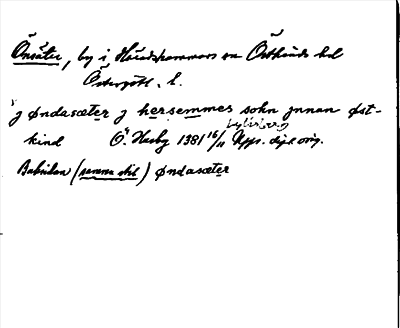 Önsäter, by i Häradshammars sn Östkinds hd
Östergötl. l.
j øndasæter j hersemmes sokn jnnan øst-
kind Ö. Husby 1381 16/11 Upps. dipl orig.
Baksidan (samma stil) øndasæter